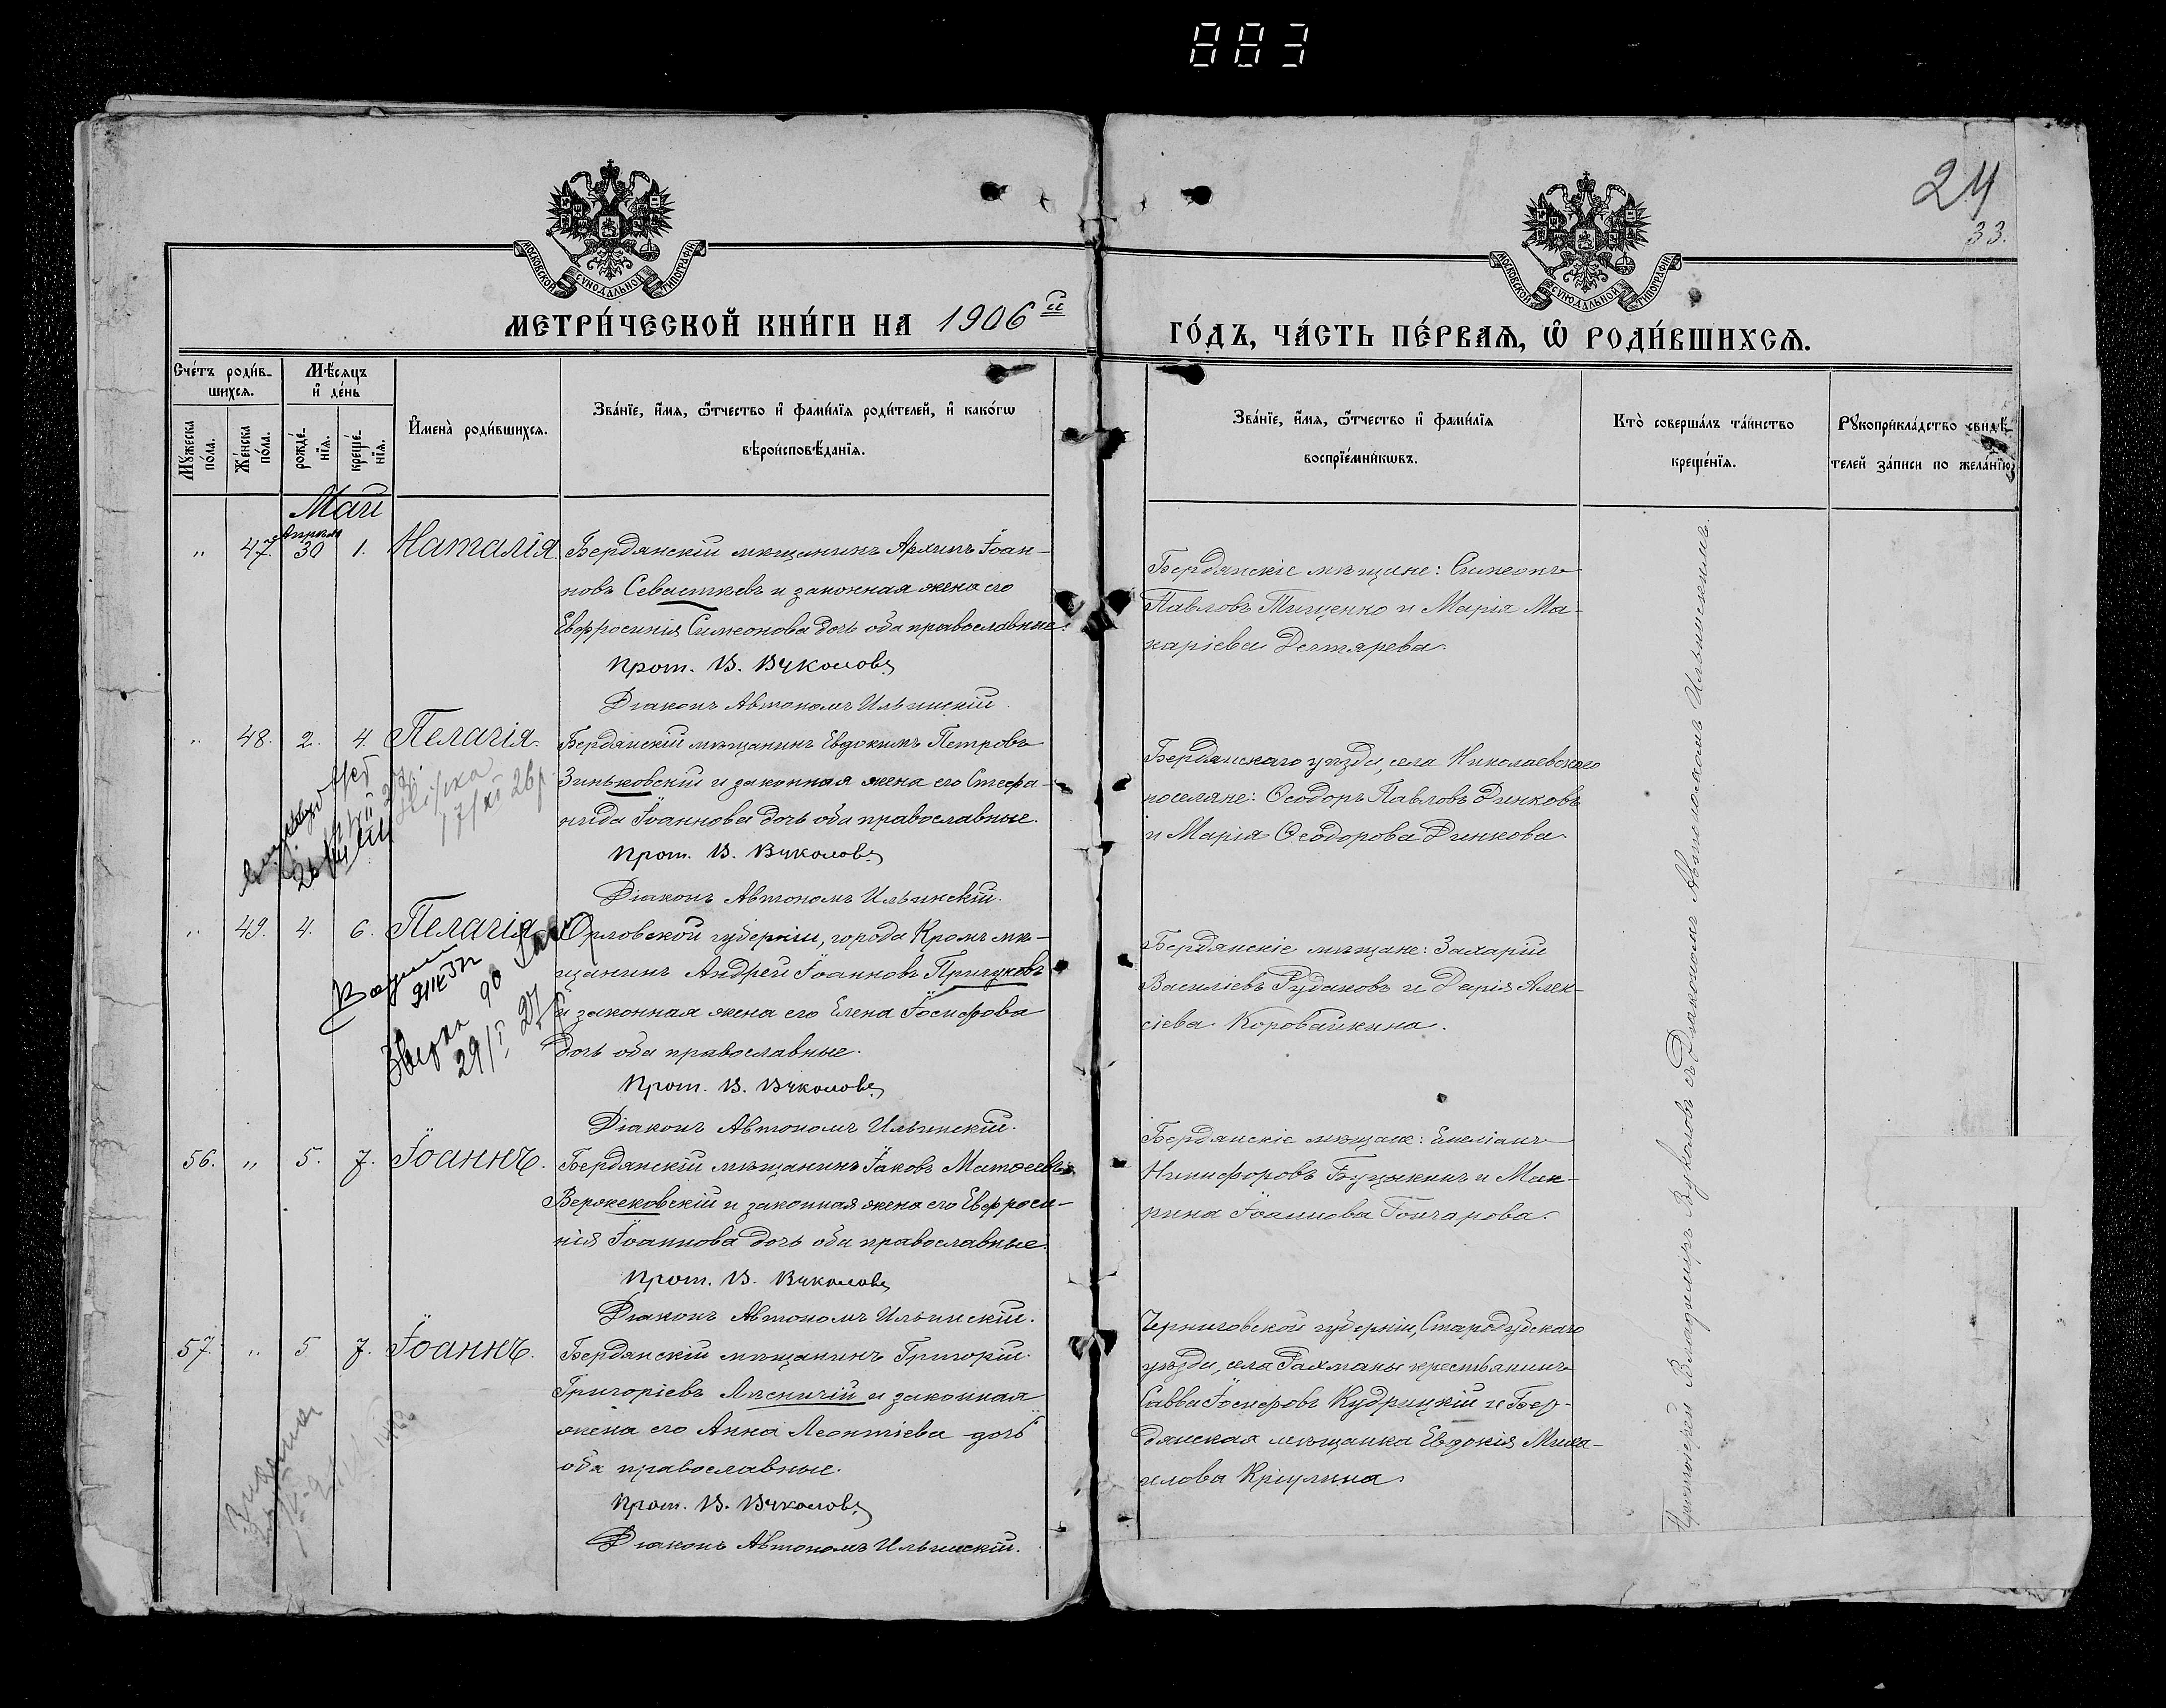 883
24
33.
МОСКОВСКОЙ СѴНОДАЛЬНОЙ ТИПОГРАФІИ
МОСКОВСКОЙ СѴНОДАЛЬНОЙ ТИПОГРАФІИ
МЕТРИ́ЧЕСКОЙ КНИ́ГИ НА 1906й
ГО́ДЪ, ЧА́СТЬ ПЕ́РВАѦ, Ѿ РОДИ́ВШИХСѦ.
Сче́тъ роди́в-
шихсѧ.
Мѣ́сѧцъ
и҆ де́нь
Му́жеска по́ла.
Же́нска по́ла.
рожде́нїѧ.
креще́нїѧ.
И҆мена̀ роди́вшихсѧ.
Зва́нїе, и҆́мѧ, ѻ҆́тчество и҆ фами́лїѧ роди́телей, и҆ како́гѡ
вѣроисповѣ́данїѧ.
Зва́нїе, и҆́мѧ, ѻ҆́тчество и҆ фами́лїѧ
воспрїе́мникѡвъ.
Кто̀ соверша́лъ та́инство
креще́нїѧ.
Рꙋкоприкла́дство свидѣ́-
телей за́писи по жела́нїю
Май
Апрѣля
„ 47. 30 1. Наталія
Бердянскій мѣщанинъ Архипъ Іоан-
новъ Севасткевъ и законная жена его
Евфросинія Симеонова дочь оба православные.
Прот. В. Вуколовъ
Діаконъ Автономъ Ильинскій.
Бердянскіе мѣщане: Симеонъ
Павловъ Тищенко и Марія Ма-
каріева Дегтярева.
„ 48. 2. 4. Пелагія.
Бердянскій мѣщанинъ Евдокимъ Петровъ
Зиньковскій и законная жена его Стефа-
нида Іоаннова дочь оба православные.
Прот. В. Вуколовъ
Діаконъ Автономъ Ильинскій.
17/XI 26 р.
Бердянскаго уѣзда, села Николаевскаго
поселяне: Ѳеодоръ Павловъ Динковъ
и Марія Ѳеодорова Динкова.
„ 49. 4. 6. Пелагія
Орловской губерніи, города Кромъ мѣ-
щанинъ Андрей Іоанновъ Причуковъ
и законная жена его Елена Іосифова
дочь оба православные.
Прот. В. Вуколовъ
Діаконъ Автономъ Ильинскій.
29/I 27
Бердянскіе мѣщане: Захарій
Василіевъ Рудаковъ и Дарія Алек-
сіева Коровайкина.
56. „ 5. 7. Іоаннъ.
Бердянскій мѣщанинъ Іаковъ Матѳеевъ
Вержековскій и законная жена его Евфроси-
нія Іоаннова дочь оба православные.
Прот. В. Вуколовъ
Діаконъ Автономъ Ильинскій.
Бердянскіе мѣщане: Емеліанъ
Никифоровъ и Мак-
рина Іоаннова Гончарова.
57. „ 5 7. Іоаннъ.
Бердянскій мѣщанинъ Григорій
Григоріевъ Лясничій и законная
жена его Анна Леонтіева дочь
оба православные.
Прот. В. Вуколовъ
Діаконъ Автономъ Ильинскій.
Черниговской губерніи, Стародубскаго
уѣзда, села Рахманы крестьянинъ
Савва Іосифовъ Кудрицкій и Бер-
дянская мѣщанка Евдокія Миха-
илова Кріулина.
Протоіерей Владиміръ Вуколовъ съ Діакономъ Автономомъ Ильинскимъ.